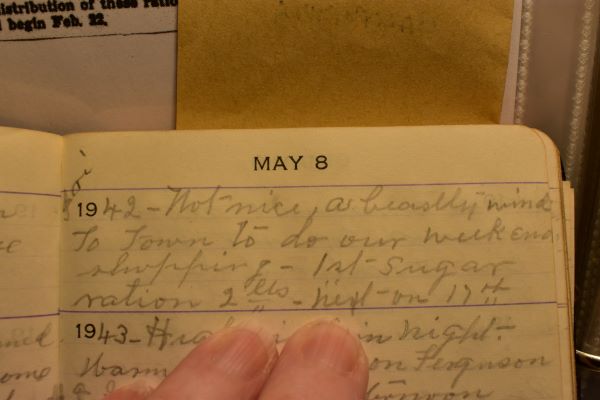 istribution of these ratio
l begin Feb. 22.
MAY 8
Fri
1942 - Not nice, a beastly wind
To Town to do our week end
shopping - 1st Sugar
ration 2 lbs - Next on 17th
1943 - in night.
Warm on Ferguson